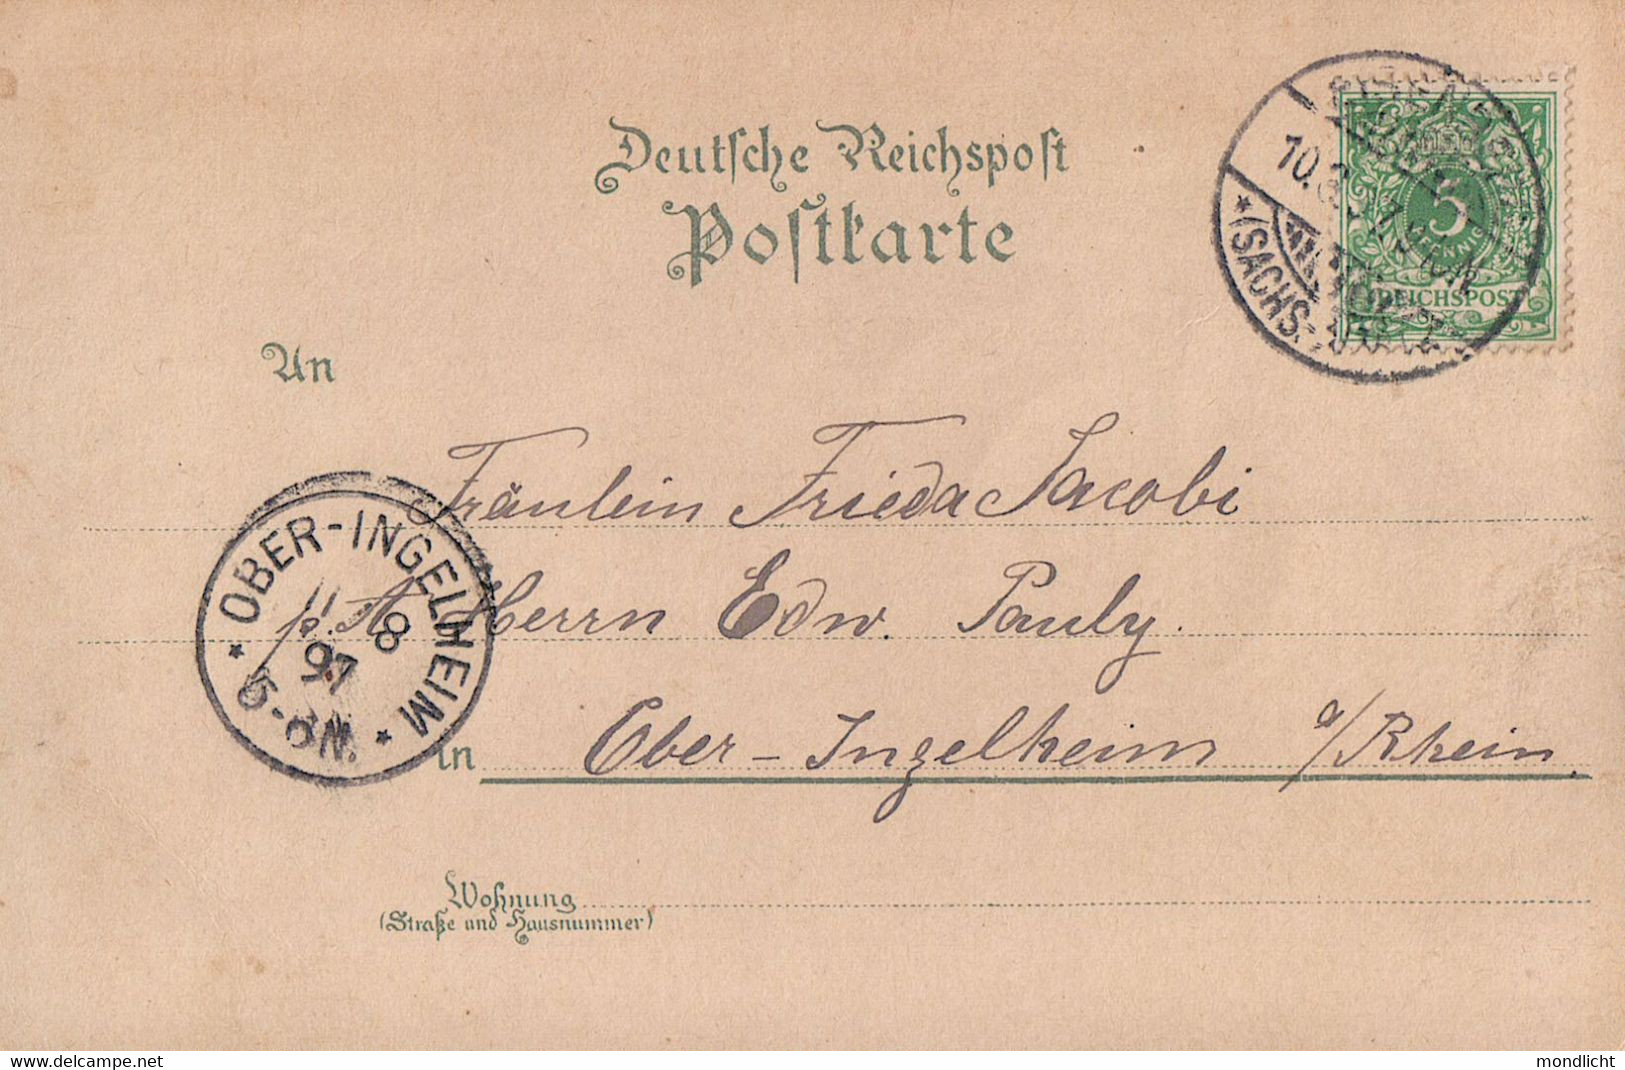 Deutsche Reichspost
Postkarte
10.8.
(SACHS.
5
PFENNIG
REICHSPOST
An
Fräulein Frieda Jacobi
p. A. Herrn Edw. Pauly.
in Ober-Ingelheim a/Rhein.
OBER-INGELHEIM
11 8
97
Wohnung
(Straße und Hausnummer)
www.delcampe.net
mondlicht